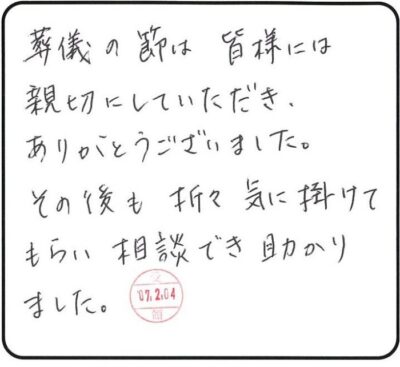 葬儀の節は 皆様には
親切にしていただき、
ありがとうございました。
その後も 折々 気に掛けて
もらい 相談でき 助かり
ました。
'07.2.04